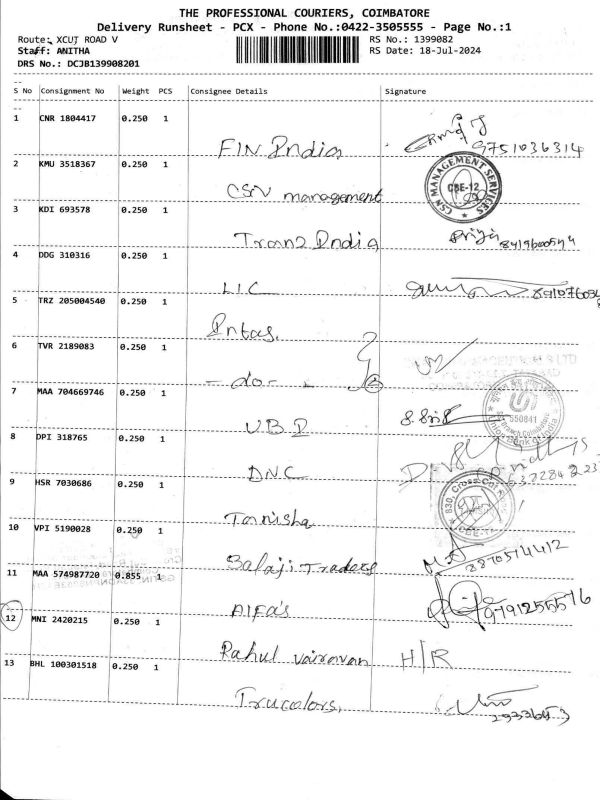 THE PROFESSIONAL COURIERS, COIMBATORE
Delivery Runsheet - PCX - Phone No.:0422-3505555 - Page No.:1
Route: XCUT ROAD V RS No.: 1399082
Staff: ANITHA RS Date: 18-Jul-2024
DRS No.: DCJB139908201
S No Consignment No Weight PCS Consignee Details Signature
1 CNR 1804417 0.250 1 FIN India 9751036314
2 KMU 3518367 0.250 1 CSN management CSN MANAGEMENT SERVICES CBE-12
3 KDI 693578 0.250 1 Tranz India Priya 8419600574
4 DDG 310316 0.250 1 LIC
5 TRZ 205004540 0.250 1 Intas.
6 TVR 2189083 0.250 1 -do-
7 MAA 704669746 0.250 1 U.B.I 550841 Union Bank of India
8 DPI 318765 0.250 1 DNC
9 HSR 7030686 0.250 1 Tanishq 830, Cross Cut
10 VPI 5190028 0.250 1 Balaji Traders 8870514412
11 MAA 574987720 0.855 1 Alfa's 9791255516
12 MNI 2420215 0.250 1 Rahul vairavan H/R
13 BHL 100301518 0.250 1 Trucolors.